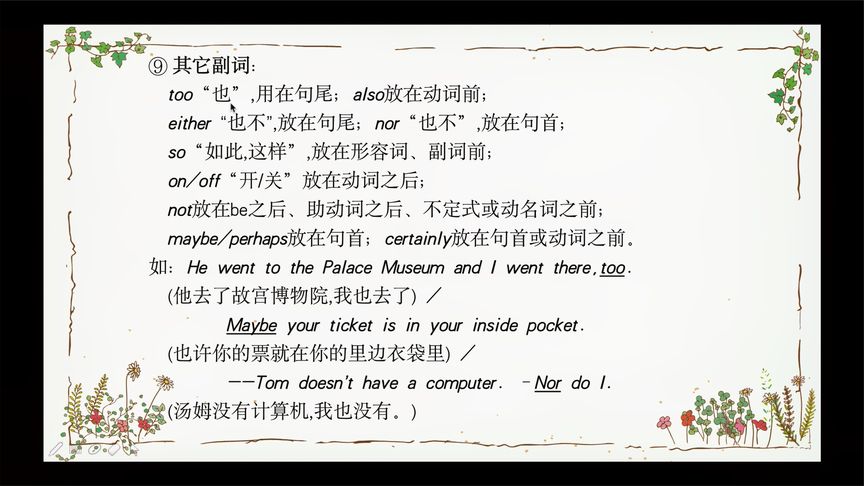 ⑨ 其它副词：
too“也”,用在句尾；also放在动词前；
either “也不”,放在句尾；nor“也不”,放在句首；
so“如此,这样”,放在形容词、副词前；
on/off“开/关”放在动词之后；
not放在be之后、助动词之后、不定式或动名词之前；
maybe/perhaps放在句首；certainly放在句首或动词之前。
如：He went to the Palace Museum and I went there,too.
(他去了故宫博物院,我也去了) ／
Maybe your ticket is in your inside pocket.
(也许你的票就在你的里边衣袋里) ／
--Tom doesn't have a computer. -Nor do I.
(汤姆没有计算机,我也没有。)